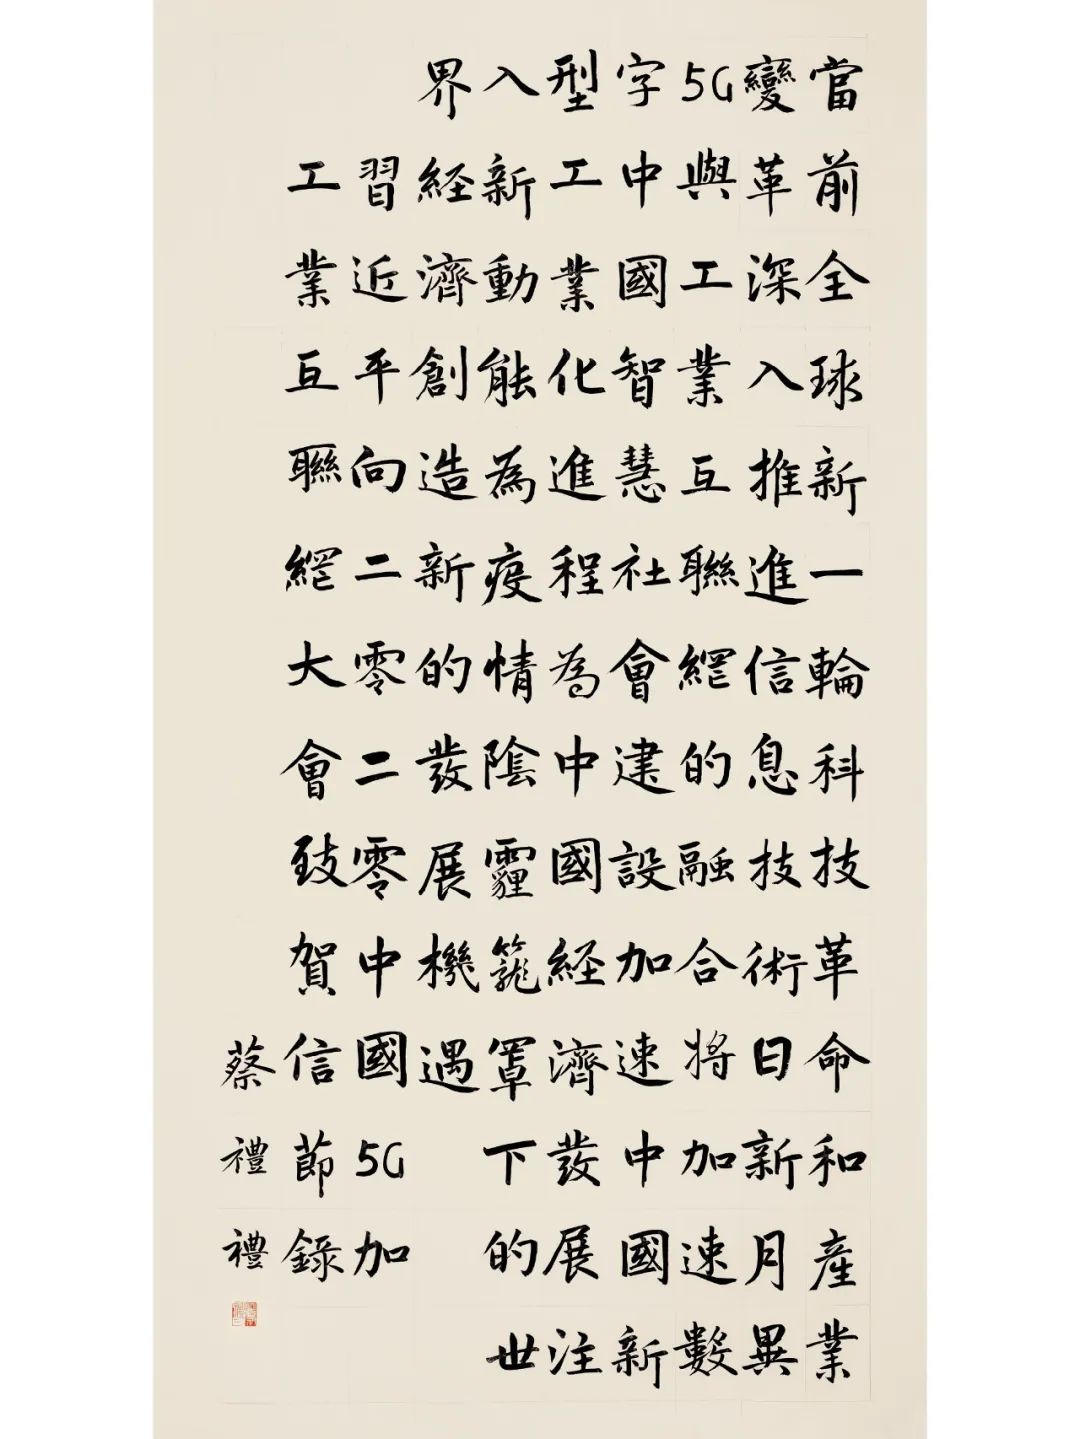 當前全球新一輪科技革命和產業
變革深入推進信息技術日新月異
5G與工業互聯網的融合將加速數
字中國智慧社會建設加速中國新
型工業化進程為中國経濟發展注
入新動能為疫情陰霾籠罩下的世
界経濟創造新的發展機遇
習近平向二零二零中國5G加
工業互聯網大會致賀信節錄
蔡禮禮